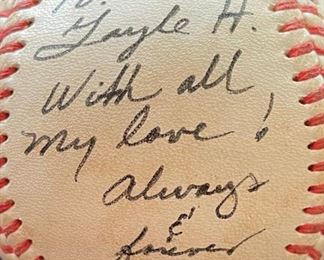 Gayle H.
With all
my love!
Always
&
forever